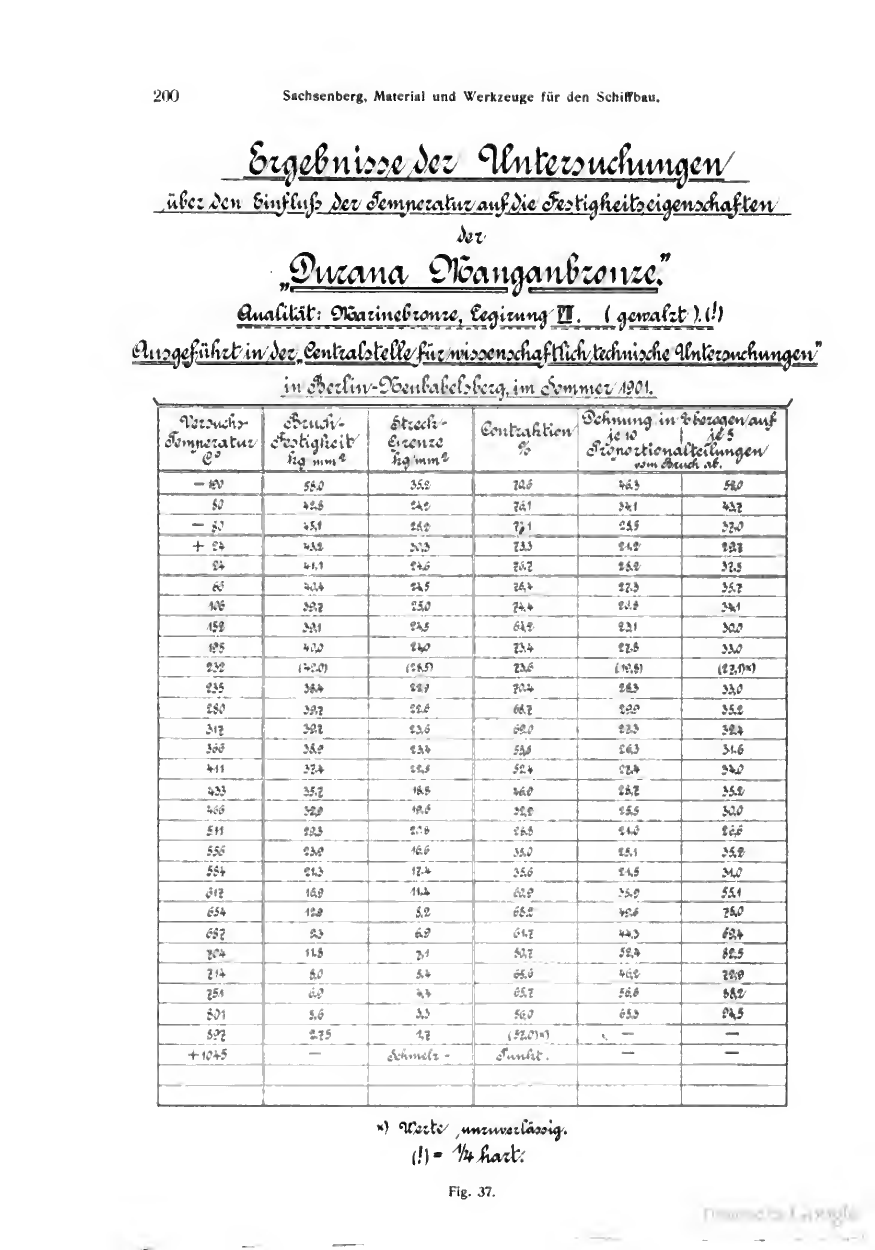 200 Sachsenberg, Material und Werkzeuge für den Schiffbau.
Ergebnisse der Untersuchungen
über den Einfluß der Temperatur auf die Festigkeitseigenschaften
der
„Durana Manganbronze."
Qualität: Marinebronze, Legirung VII. (gewalzt).(!)
Ausgeführt in der „Centralstelle für wissenschaftlich technische Untersuchungen"
in Berlin-Neubabelsberg, im Sommer 1901.
Versuchs- Bruch- Streck- Contraktion Dehnung in % bezogen auf
Temperatur Festigkeit Grenze % je 10 | je 5
C° kg mm² kg mm² Proportionalteilungen
vom Bruch ab.
35,2 70,6 46,3
24,2 76,1 34,1 43,7
45,1 32,0
+ 24 43,2 30,3 73,3 24,2
24 41,1 24,6 76,7 37,5
40,4 24,5 76,4 27,3 35,7
106 39,7 25,0 74,4 34,1
152 39,1 24,5 64,2 23,1 30,0
195 40,0 24,0 73,4 27,8 33,0
232 (42,0) (28,5) 73,6 (19,8) (27,1)×)
235 38,4 22,7 70,4 28,3 33,0
280 39,7 22,8 68,7 29,9 35,2
317 39,2 23,6 69,0 32,4
366 38,9 23,4 26,3 31,6
411 37,4 52,4 27,4 34,0
433 35,7 18,8 46,0 28,7 35,2
466 32,9 19,6 32,2 25,5 30,0
511 29,3 20,8 28,8 21,0 26,6
556 23,0 16,6 35,0 25,1 35,2
584 21,3 17,4 35,6 24,5 31,0
617 16,9 11,4 60,9 55,1
654 12,9 8,2 68,2 49,6 75,0
657 9,3 6,9 61,7 44,3 69,4
704 11,8 7,1 50,7 52,4 82,5
714 8,0 5,4 65,6 46,2 72,9
751 6,9 4,4 65,7 56,8 88,2
801 5,6 3,3 56,0 65,3 94,5
897 2,75 1,7 (57,0)×) — —
+1045 — Schmelz- Punkt. — —
×) Werte unzuverlässig.
(!) = 1/4 hart.
Fig. 37.
Google